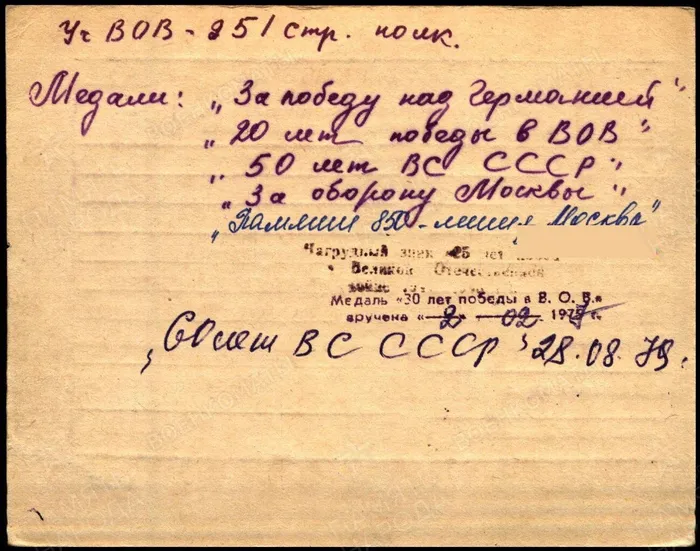 Уч ВОВ - 851 стр. полк.
Медали: „За победу над Германией"
„20 лет победы в ВОВ"
„50 лет ВС СССР"
„За оборону Москвы"
„Памяти 850-летия Москвы"
Нагрудный знак «25 лет
Великой Отечественной
войне
Медаль «30 лет победы в В. О. В.»
вручена « 2 » 02. 197 г.
„60 лет ВС СССР" 28.08.79.